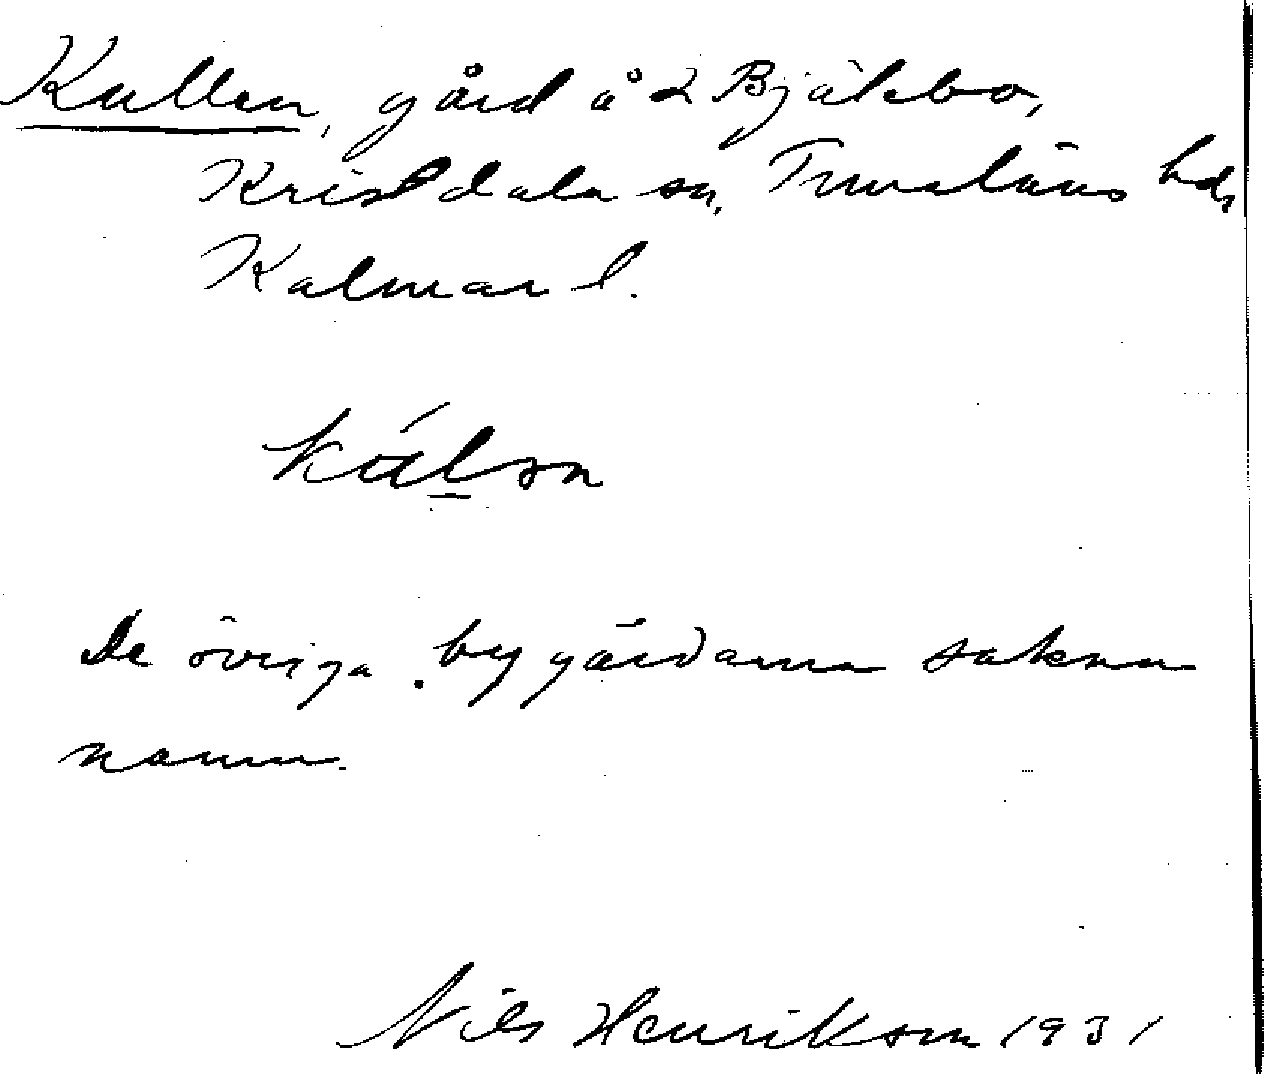 Kullen, gård å 2 Bjälebo,
Kristdala sn, Tunaläns hd,
Kalmar l.
kúlən
De övriga bygårdarna sakna
namn.
Nils Henrikson 1931